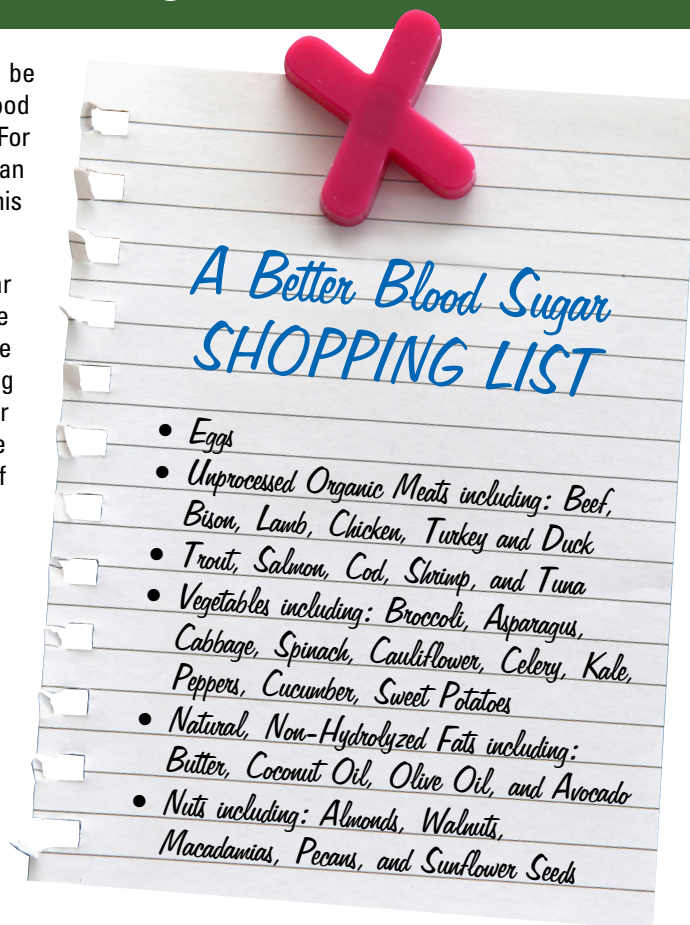 be
For
an
A Better Blood Sugar
SHOPPING LIST
• Eggs
• Unprocessed Organic Meats including: Beef,
Bison, Lamb, Chicken, Turkey and Duck
• Trout, Salmon, Cod, Shrimp, and Tuna
• Vegetables including: Broccoli, Asparagus,
Cabbage, Spinach, Cauliflower, Celery, Kale,
Peppers, Cucumber, Sweet Potatoes
• Natural, Non-Hydrolyzed Fats including:
Butter, Coconut Oil, Olive Oil, and Avocado
• Nuts including: Almonds, Walnuts,
Macadamias, Pecans, and Sunflower Seeds